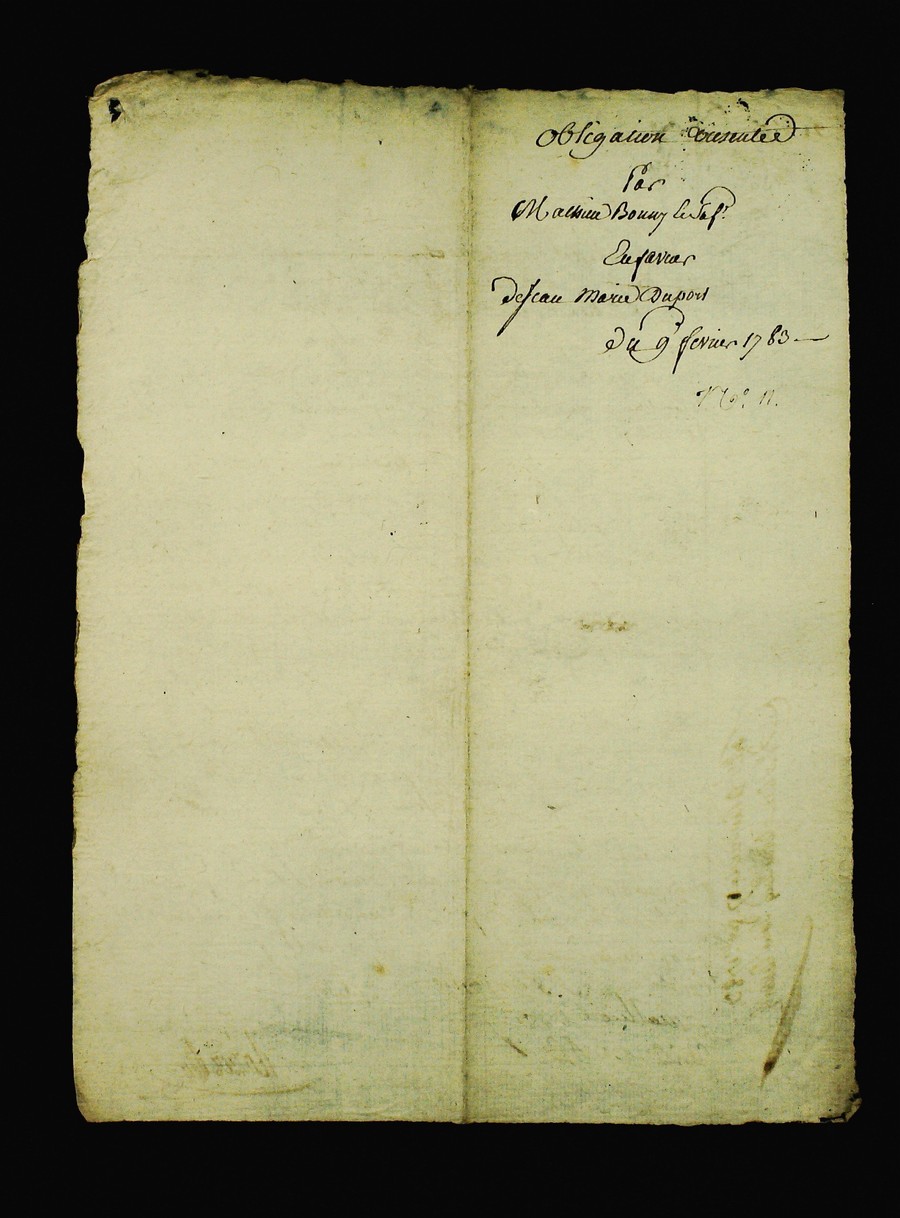 Obligation
Par
Mathieu Bouvy le
En faveur
de Jean Marie Duport
du 9e fevrier 1783
No. 11.